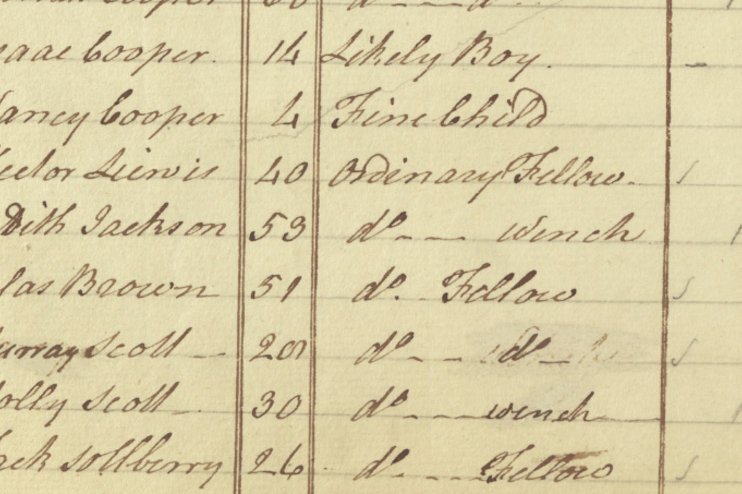 Cooper dº dº
Cooper. 14 Likely Boy.
ancy Cooper 4 Fine Child
Liewis 40 Ordinary Fellow.
ith Jackson 53 dº wench
las Brown 51 dº. Fellow
urray Scott 28 dº dº
olly Scott 30 dº wench
26 dº Fellow